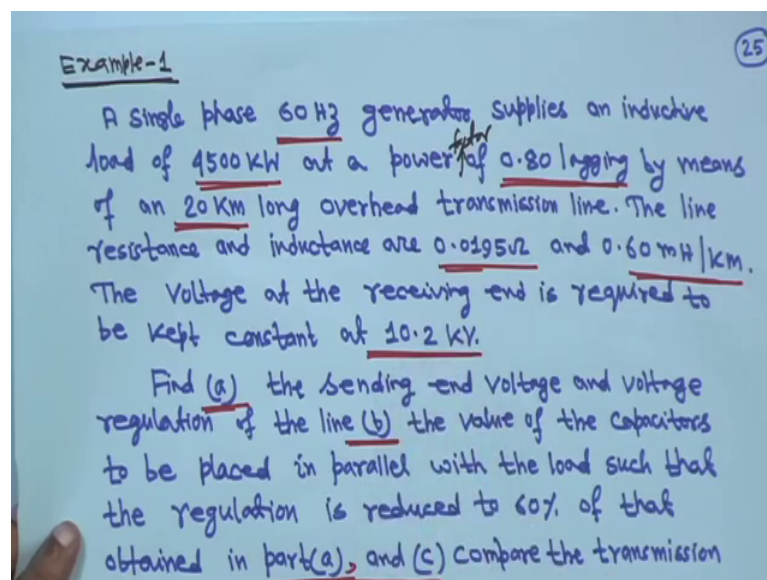 25
Example-1
A single phase 60 Hz generator supplies an inductive
factor
load of 4500 KW at a power of 0.80 lagging by means
of an 20 Km long overhead transmission line. The line
resistance and inductance are 0.0195Ω and 0.60 mH/KM.
The voltage at the receiving end is required to
be kept constant at 10.2 KV.
Find (a) the sending end voltage and voltage
regulation of the line (b) the value of the capacitors
to be placed in parallel with the load such that
the regulation is reduced to 60% of that
obtained in part(a), and (c) compare the transmission